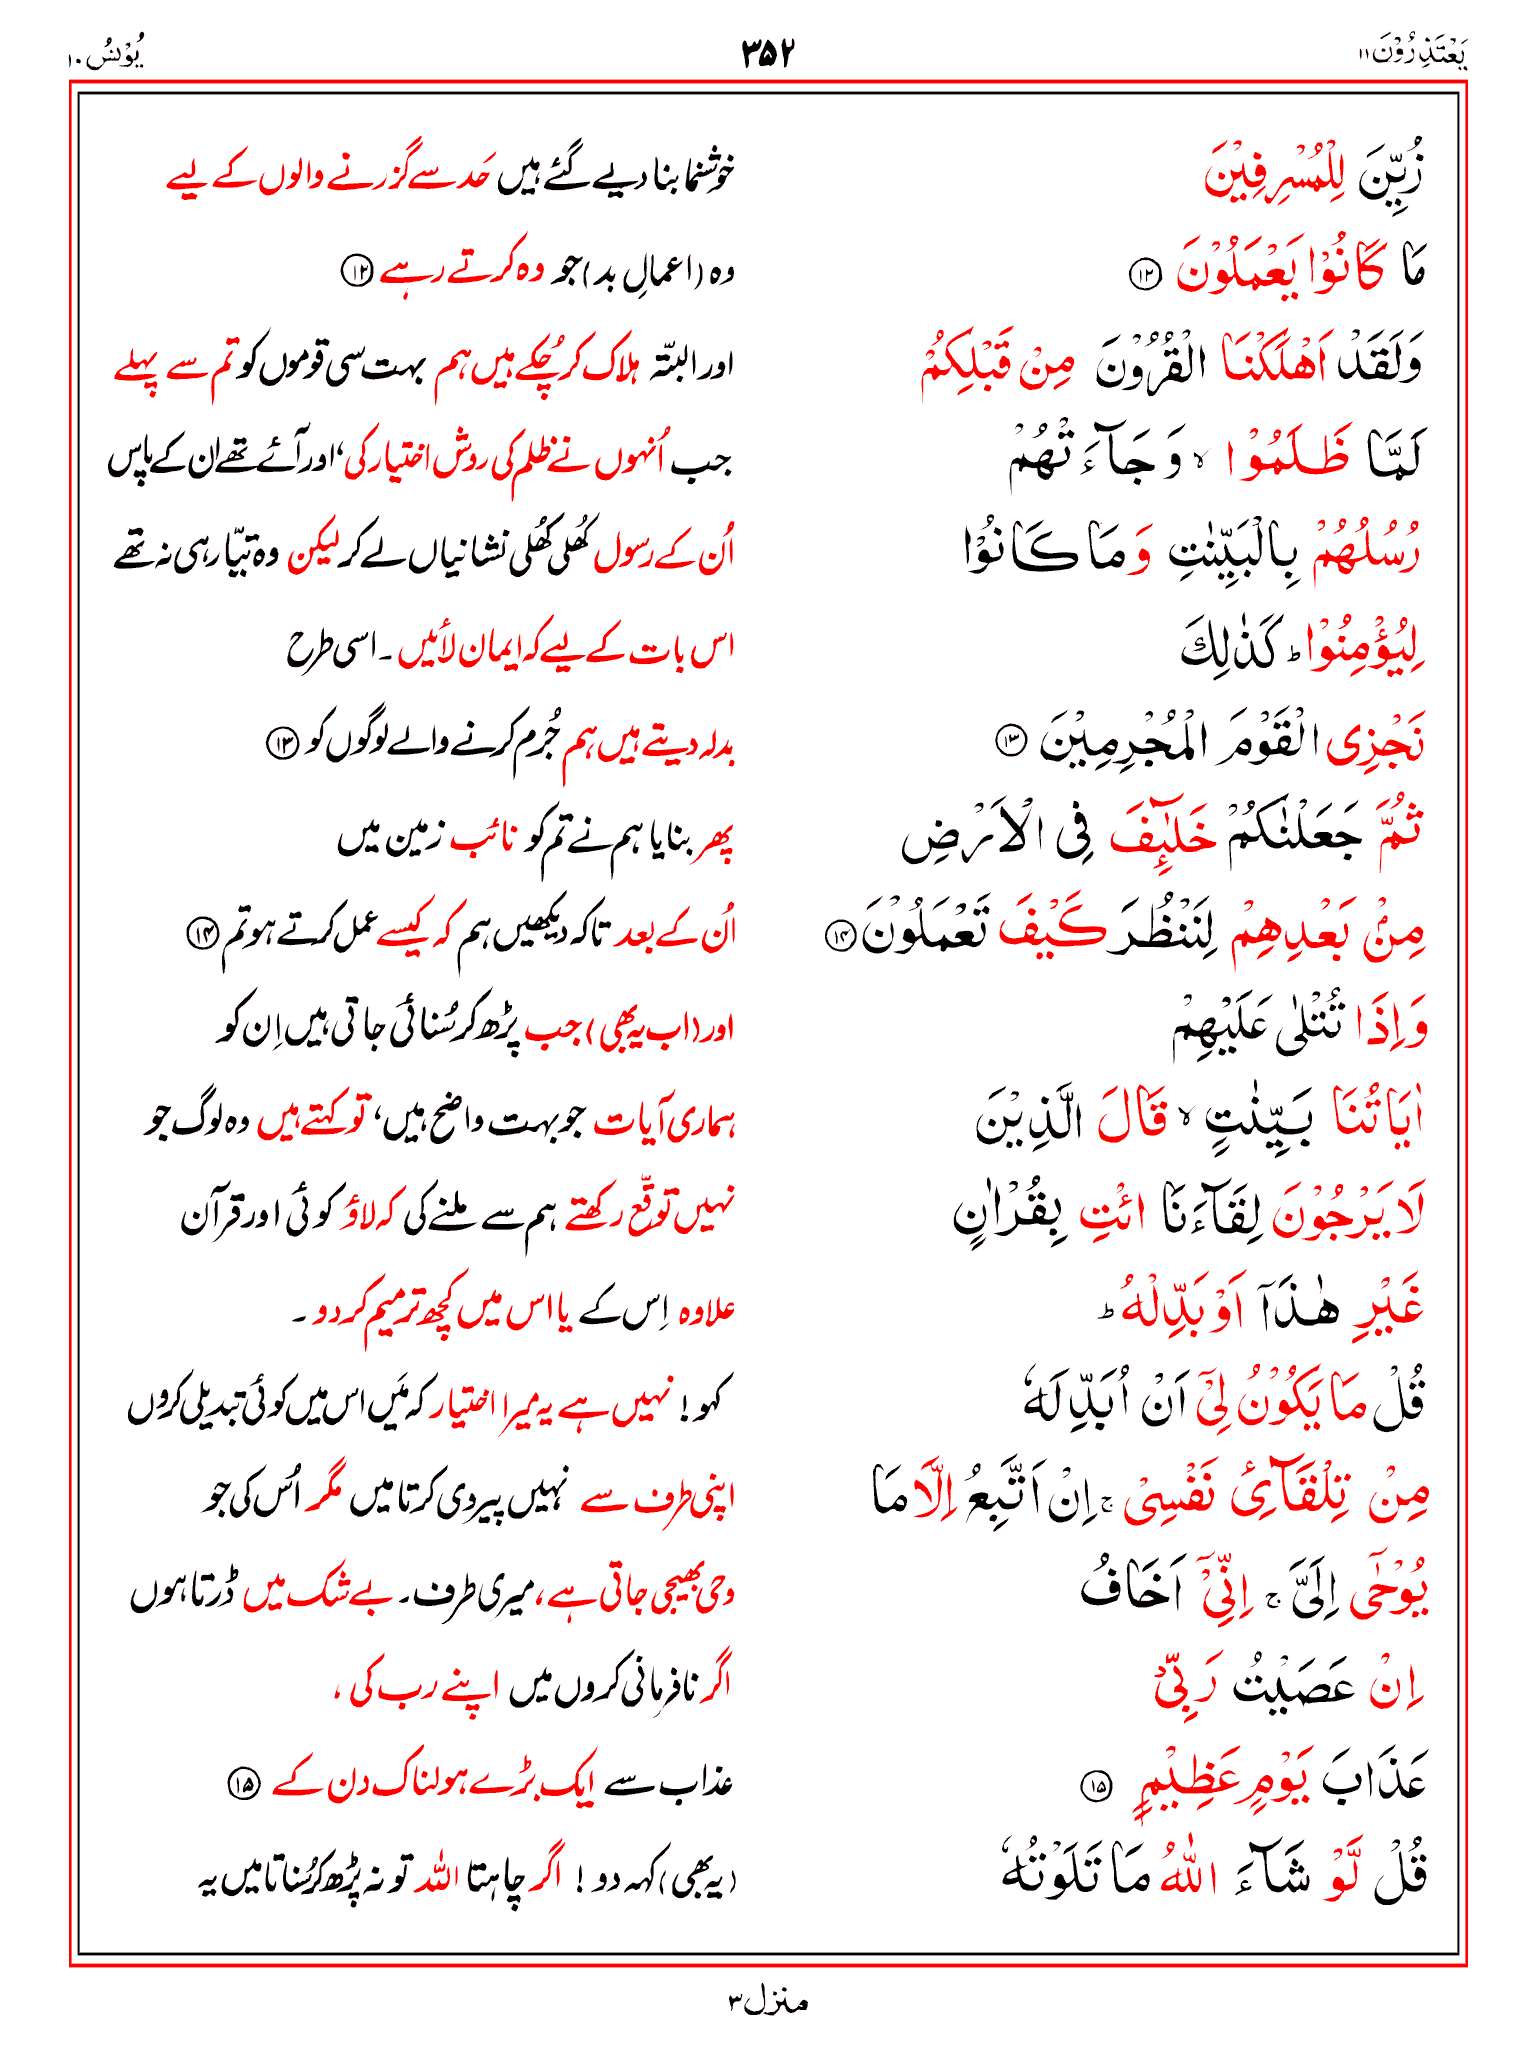 یَعْتَذِرُوْنَ ۱۱ ۳۵۲ یُوْنُس ۱۰
زُیِّنَ لِلْمُسْرِفِیْنَ خوشنما بنا دیے گئے ہیں حَد سے گزرنے والوں کے لیے
مَا كَانُوْا یَعْمَلُوْنَ ⑫ وہ (اعمالِ بد) جو وہ کرتے رہے ⑫
وَلَقَدْ اَهْلَكْنَا الْقُرُوْنَ مِنْ قَبْلِكُمْ اور البتّہ ہلاک کر چُکے ہیں ہم بہت سی قوموں کو تم سے پہلے
لَمَّا ظَلَمُوْا ۙ وَجَآءَتْهُمْ جب اُنہوں نے ظلم کی روش اختیار کی، اور آئے تھے ان کے پاس
رُسُلُهُمْ بِالْبَیِّنٰتِ وَمَا كَانُوْا اُن کے رسول کھُلی کھُلی نشانیاں لے کر لیکن وہ تیّار ہی نہ تھے
لِیُؤْمِنُوْا ؕ كَذٰلِكَ اس بات کے لیے کہ ایمان لائیں۔ اسی طرح
نَجْزِی الْقَوْمَ الْمُجْرِمِیْنَ ⑬ بدلہ دیتے ہیں ہم جُرم کرنے والے لوگوں کو ⑬
ثُمَّ جَعَلْنٰكُمْ خَلٰٓىِٕفَ فِی الْاَرْضِ پھر بنایا ہم نے تم کو نائب زمین میں
مِنْۢ بَعْدِهِمْ لِنَنْظُرَ كَیْفَ تَعْمَلُوْنَ ⑭ اُن کے بعد تاکہ دیکھیں ہم کہ کیسے عمل کرتے ہو تم ⑭
وَاِذَا تُتْلٰی عَلَیْهِمْ اور (اب یہ بھی) جب پڑھ کر سُنائی جاتی ہیں اِن کو
اٰیَاتُنَا بَیِّنٰتٍ ۙ قَالَ الَّذِیْنَ ہماری آیات جو بہت واضح ہیں، تو کہتے ہیں وہ لوگ جو
لَا یَرْجُوْنَ لِقَآءَنَا ائْتِ بِقُرْاٰنٍ نہیں توقّع رکھتے ہم سے ملنے کی کہ لاؤ کوئی اور قرآن
غَیْرِ هٰذَاۤ اَوْ بَدِّلْهُ ؕ علاوہ اِس کے یا اس میں کچھ ترمیم کر دو ۔
قُلْ مَا یَكُوْنُ لِیْۤ اَنْ اُبَدِّلَهٗ کہو! نہیں ہے یہ میرا اختیار کہ مَیں اس میں کوئی تبدیلی کروں
مِنْ تِلْقَآئِ نَفْسِیْ ۚ اِنْ اَتَّبِعُ اِلَّا مَا اپنی طرف سے نہیں پیروی کرتا میں مگر اُس کی جو
یُوْحٰۤی اِلَیَّ ۚ اِنِّیْۤ اَخَافُ وحی بھیجی جاتی ہے، میری طرف۔ بے شک میں ڈرتا ہوں
اِنْ عَصَیْتُ رَبِّیْ اگر نافرمانی کروں میں اپنے رب کی ،
عَذَابَ یَوْمٍ عَظِیْمٍ ⑮ عذاب سے ایک بڑے ہولناک دن کے ⑮
قُلْ لَّوْ شَآءَ اللّٰهُ مَا تَلَوْتُهٗ (یہ بھی) کہہ دو! اگر چاہتا اللہ تو نہ پڑھ کر سُناتا میں یہ
منزل ۳